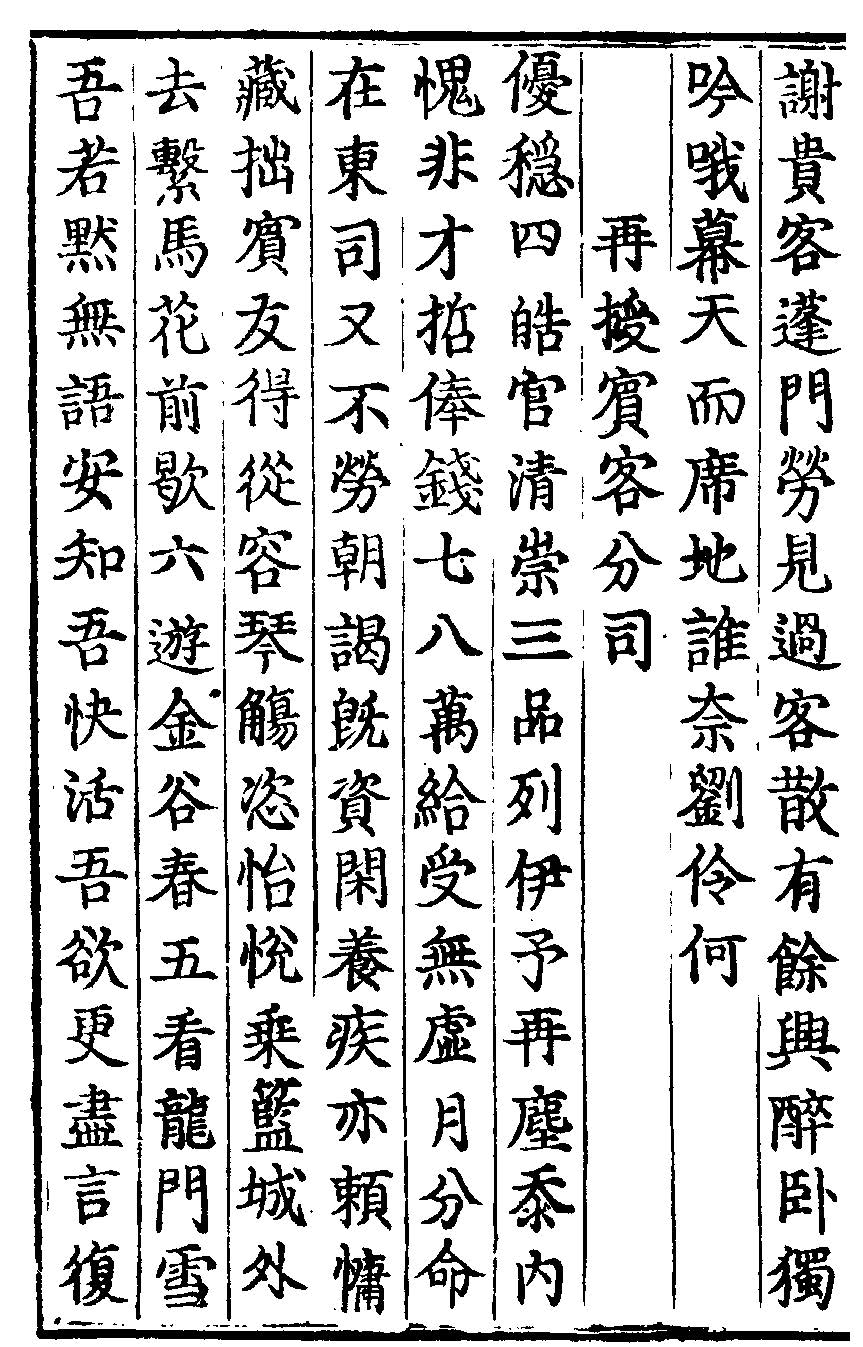 謝貴客蓬門勞見過客散有餘興醉卧獨
吟哦幕天而席地誰奈劉伶何
再授賓客分司
優穩四皓官清崇三品列伊予再塵忝內
愧非才哲俸錢七八萬給受無虛月分命
在東司又不勞朝謁旣資閑養疾亦賴慵
藏拙賓友得從容琴觴恣怡悅乗籃城外
去繫馬花前歇六遊金谷春五看龍門雪
吾若默無語安知吾快活吾欲更盡言復